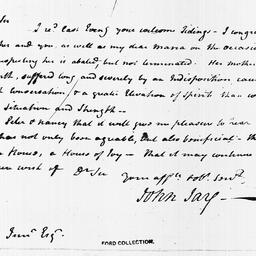 I rec.d last Even.g your welcome Tidings - I congra
her and you, as well as my dear Maria on the occasion
is abated, but not terminated. Her mother
suffered long and severely by an Indisposition cau
Conversation, & a greater Elevation of Spirits than
Situation and Strength -
Peter & Nancy that it will give me pleasure to hear
has not only been agreable, but also beneficial - th
a House, a House of Joy - that it may continue
wish of Dr Sir
Your aff.te
John Jay -
Jun.r Esq.r
FORD COLLECTION.